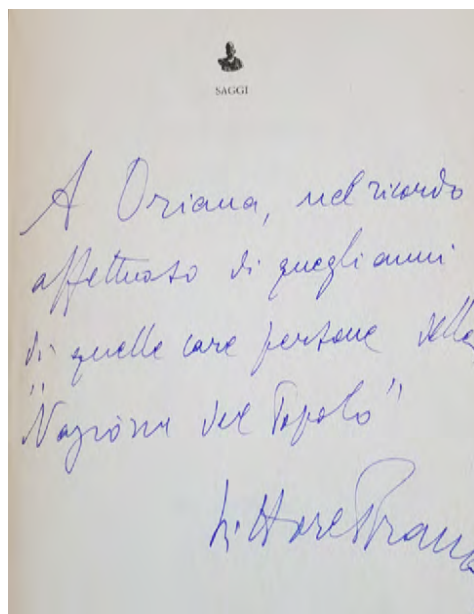 SAGGI
A Oriana, nel ricordo
affettuoso di quegli anni
di quelle care persone della
"Nazione del Popolo"
Vittore Branca